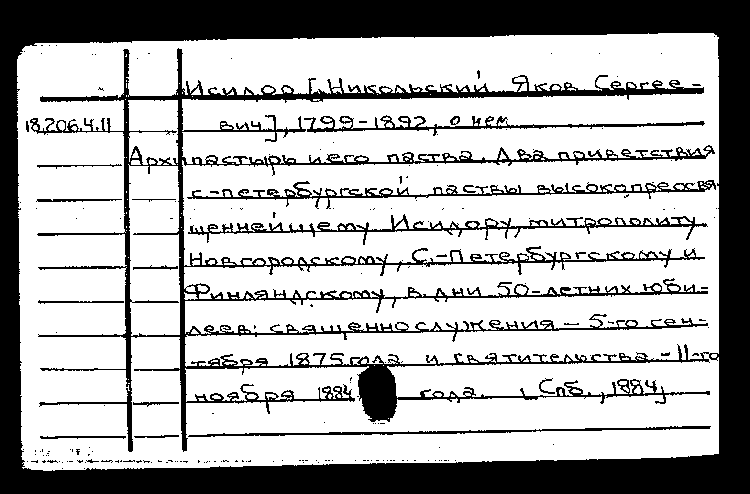 Исидор [Никольский Яков Сергее-
18.206.4.11 вич], 1799-1892, о нем
Архипастырь и его паства. Два приветствия
с.-петербургской паствы высокопреосвя-
щеннейшему Исидору, митрополиту
Новгородскому, С.-Петербургскому и
Финляндскому, в дни 50-летних юби-
леев: священнослужения - 5-го сен-
тября 1875 года и святительства - 11-го
ноября 1884 года. [Спб., 1884]